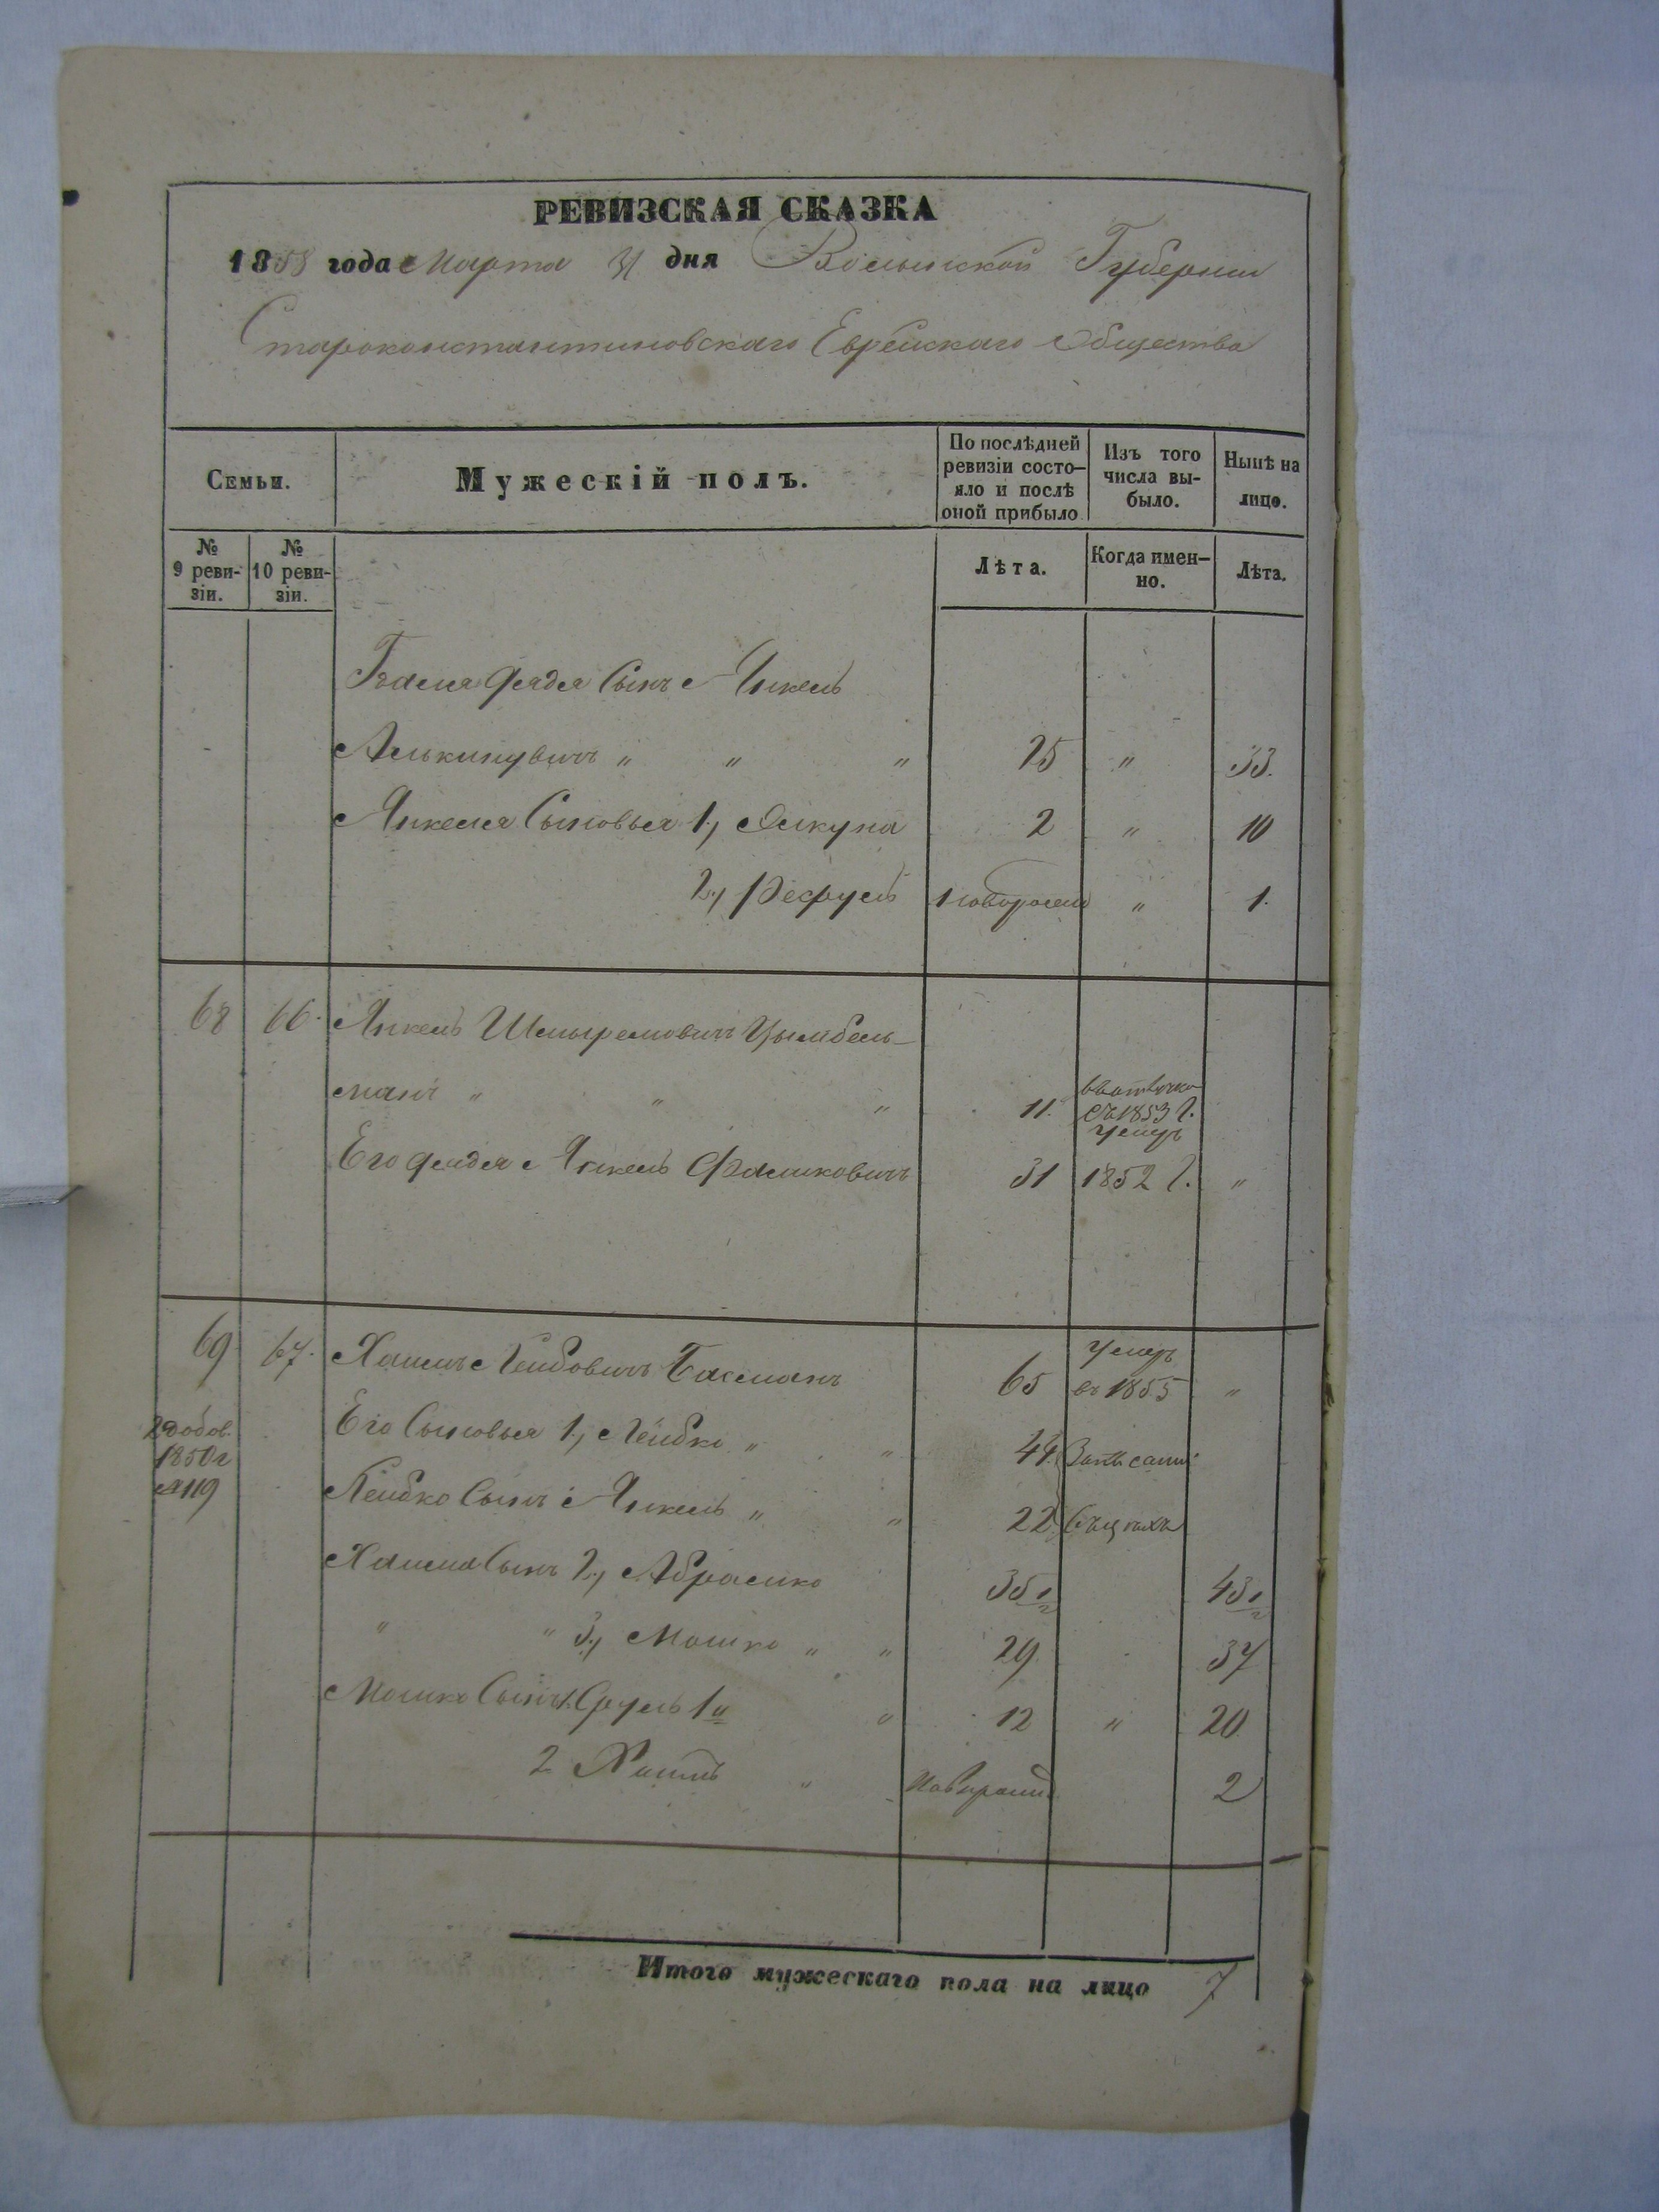 РЕВИЗСКАЯ СКАЗКА
1858 года Марта 31 дня Волынской Губернии
Староконстантиновскаго Еврейскаго Общества
Семьи. Мужескій полъ. По послѣдней ревизіи состо-яло и послѣ оной прибыло Изъ того числа вы-было. Нынѣ на лицо.
№ 9 реви-зіи. № 10 реви-зіи. Лѣта. Когда имен-но. Лѣта.
дядя Сынъ Янкель
" " " 25 " 33.
Янкеля Сыновья 1, 2 " 10
2, новорожден " 1.
68 66. Янкель Цымбель-
манъ " " " 11. съ 1853 г.
Его дядя Янкель 31 умеръ 1852 г. "
69 67. Хаимъ Лейбовичъ Басманъ 65 умеръ въ 1855 "
добов. 1850 г №119
Его Сыновья 1, Лейбко " " 44
Лейбко Сынъ Янкель " " 22
Хаима Сынъ 2, Абрамко 35 1/2 43 1/2
" " 3, Мошко " " 29. 37
Мошко Сынъ 1. Сруль 1й " 12 " 20
2 Хаимъ " Новорожд 2
Итого мужескаго пола на лицо 7